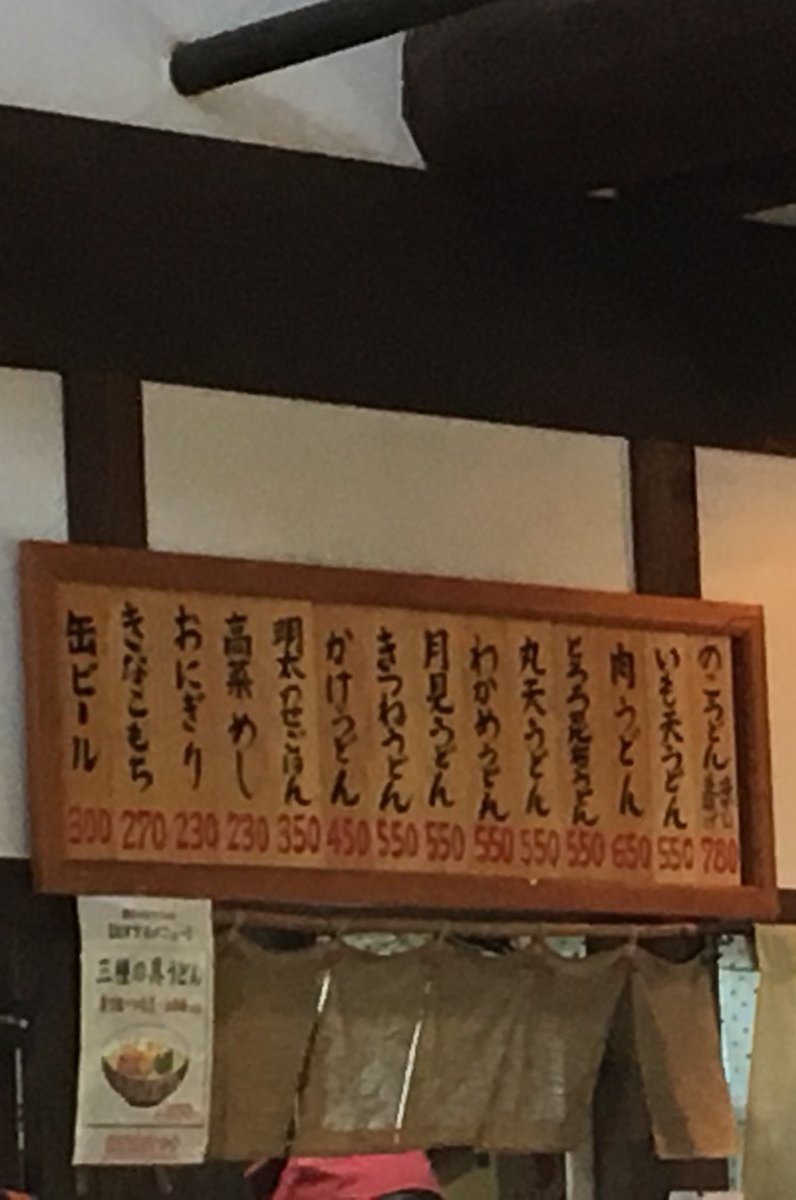 のこうどん
780
いも天うどん
550
肉うどん
650
とろろ昆布うどん
550
丸天うどん
550
わかめうどん
550
月見うどん
550
きつねうどん
550
かけうどん
450
明太のせごはん
350
高菜めし
230
おにぎり
230
きなこもち
270
缶ビール
300
三種の具うどん